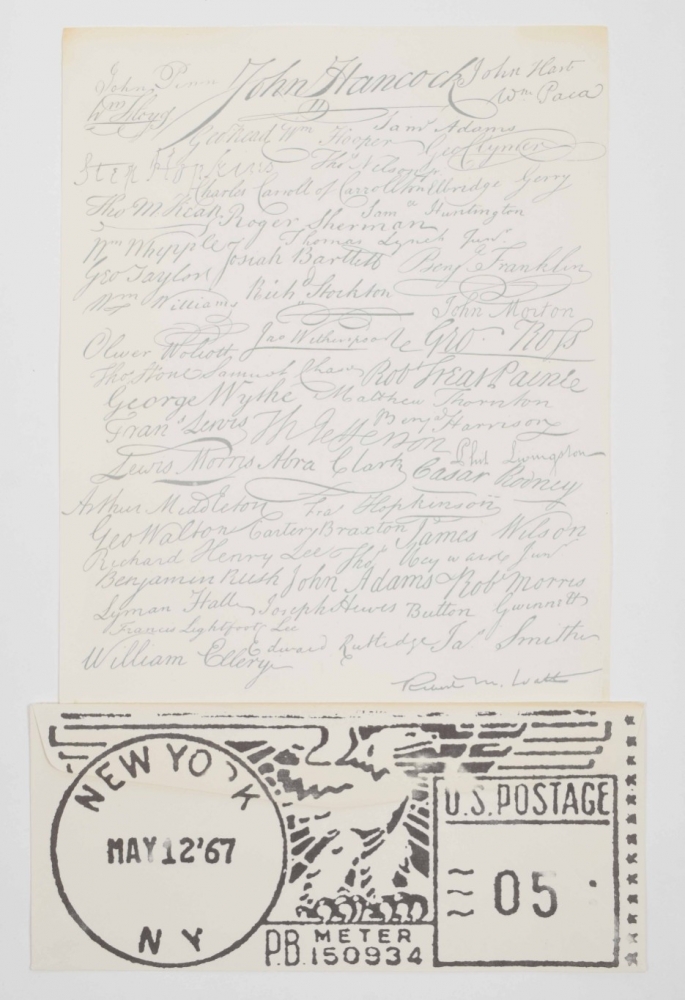 John Penn John Hancock John Hart
Wm Floyd Wm Paca
Geo Read Wm Hooper Sam Adams Geo Clymer
Step Hopkins Thos Nelson jr
Charles Carroll of Carrollton Elbridge Gerry
Tho M Kean Roger Sherman Sam Huntington
Wm Whipple Thomas Lynch Junr
Josiah Bartlett Benj Franklin
Geo Taylor
Wm Williams Richd Stockton John Morton
Oliver Wolcott Jno Witherspoon Geo. Ross
Thos Stone Samuel Chase Robt Treat Paine
George Wythe Matthew Thornton
Frans Lewis Th Jefferson Benj Harrison
Lewis Morris Abra Clark Phil. Livingston
Cæsar Rodney
Arthur Middleton Fras Hopkinson
Geo Walton Carter Braxton James Wilson
Richard Henry Lee Thos Heyward Junr
Benjamin Rush John Adams Robt Morris
Lyman Hall Joseph Hewes Button Gwinnett
Francis Lightfoot Lee
William Ellery Edward Rutledge Jas Smith
NEW YORK
MAY 12'67
N Y
P.B. METER
150934
U.S. POSTAGE
05